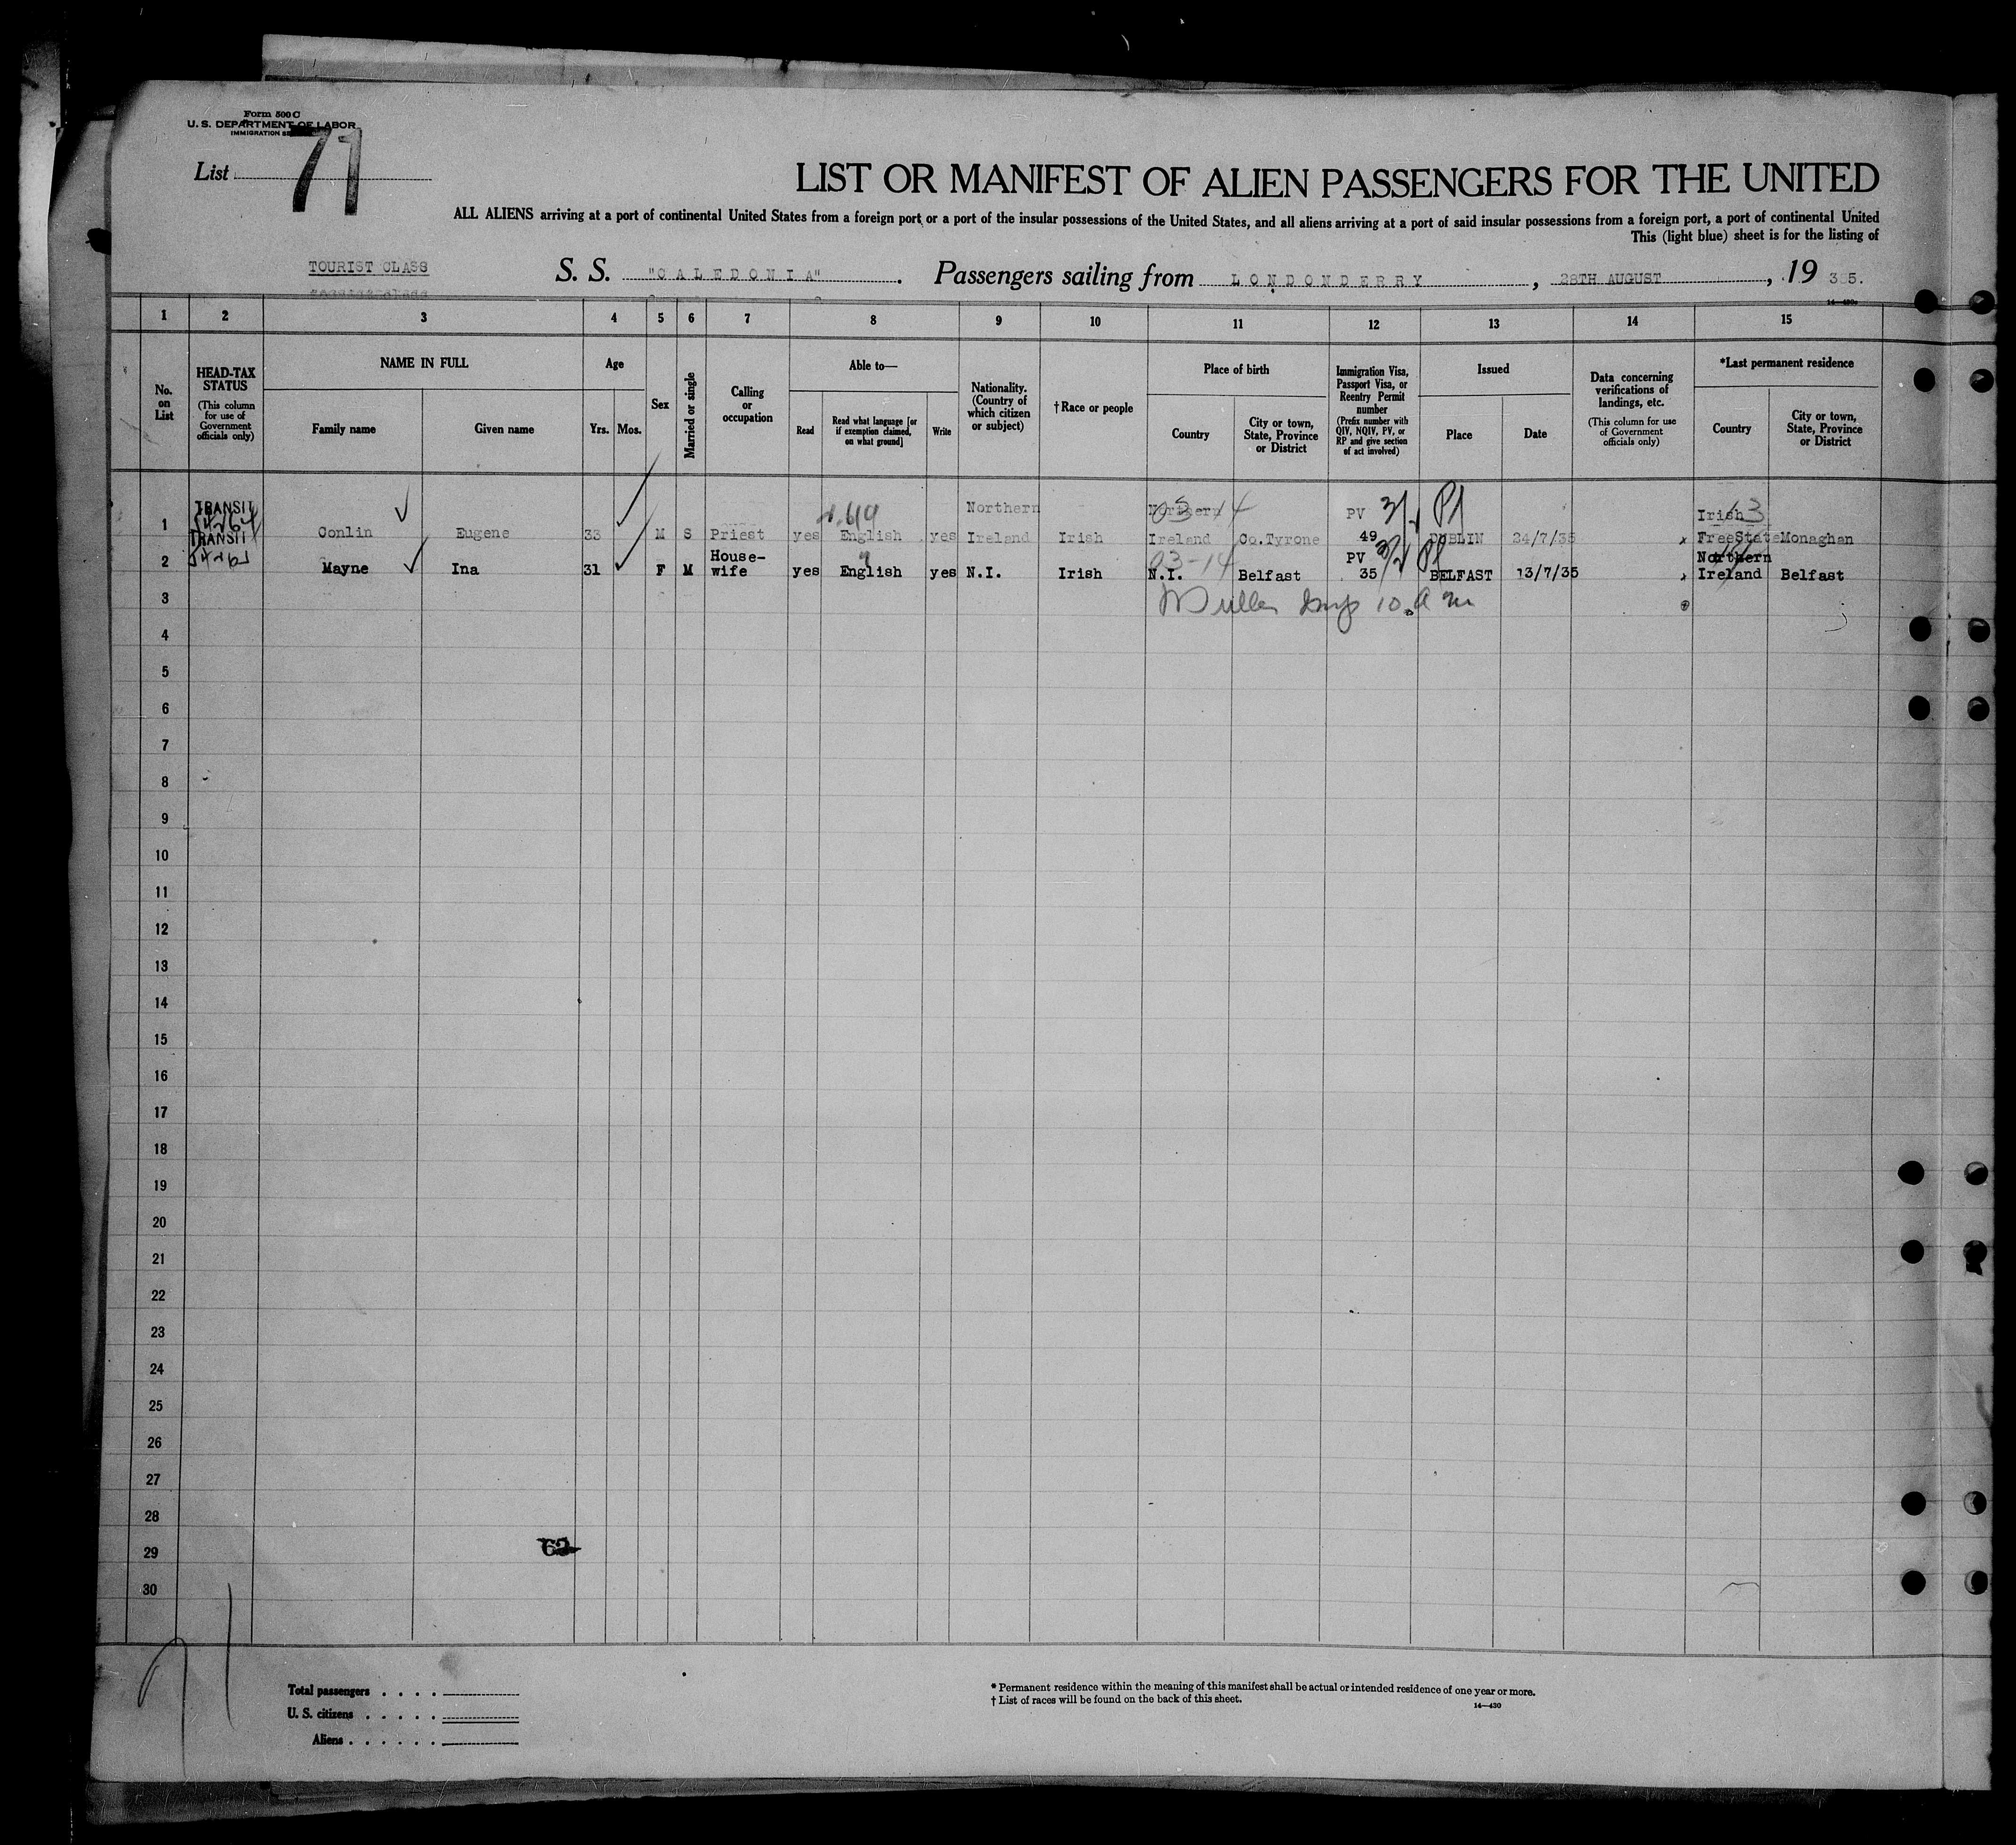 Form 500 C
U. S. DEPARTMENT OF LABOR
IMMIGRATION
List 71
LIST OR MANIFEST OF ALIEN PASSENGERS FOR THE UNITED
ALL ALIENS arriving at a port of continental United States from a foreign port or a port of the insular possessions of the United States, and all aliens arriving at a port of said insular possessions from a foreign port, a port of continental United
This (light blue) sheet is for the listing of
TOURIST CLASS
S. S. "CALEDONIA". Passengers sailing from LONDONDERRY, 28TH AUGUST, 1935.
1 2 3 4 5 6 7 8 9 10 11 12 13 14 15
No. on List
HEAD-TAX STATUS
(This column for use of Government officials only)
NAME IN FULL
Family name
Given name
Age
Yrs. Mos.
Sex
Married or single
Calling or occupation
Able to—
Read
Read what language [or if exemption claimed, on what ground]
Write
Nationality. (Country of which citizen or subject)
†Race or people
Place of birth
Country
City or town, State, Province or District
Immigration Visa, Passport Visa, or Reentry Permit number
(Prefix number with QIV, NQIV, PV, or RP and give section of act involved)
Issued
Place
Date
Data concerning verifications of landings, etc.
(This column for use of Government officials only)
*Last permanent residence
Country
City or town, State, Province or District
TRANSIT Northern Northern PV 3/ P1 Irish
1 Conlin Eugene 33 M S Priest yes English yes Ireland Irish Ireland Co.Tyrone 49 DUBLIN 24/7/35 FreeState Monaghan
TRANSIT House- 03-14 PV Northern
2 Mayne Ina 31 F M wife yes English yes N.I. Irish N.I. Belfast 35 BELFAST 13/7/35 Ireland Belfast
3
4
5
6
7
8
9
10
11
12
13
14
15
16
17
18
19
20
21
22
23
24
25
26
27
28
29
62
30
Total passengers . . . .
U. S. citizens . . . . .
Aliens . . . . . .
* Permanent residence within the meaning of this manifest shall be actual or intended residence of one year or more.
† List of races will be found on the back of this sheet.
14—430